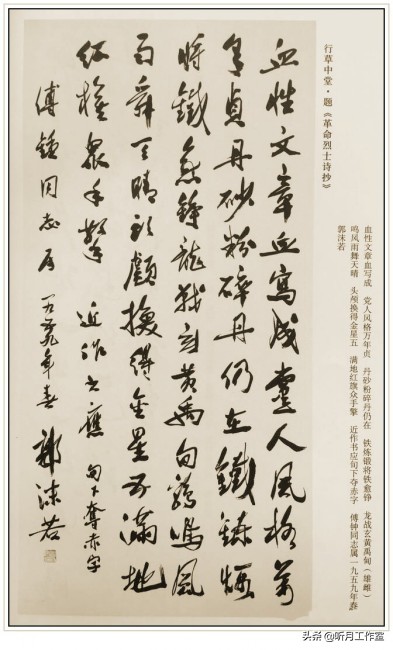 血性文章血写成 党人风格万年贞 丹砂粉碎丹仍在 铁炼锻将铁愈铮 龙战玄黄禹甸（雄雌）
鸣风雨舞天晴 头颅换得金星五 满地红旗众手擎 近作书应句下夺赤字 傅钟同志属一九五九年春
郭沫若
行草中堂·题《革命烈士诗抄》
血性文章血寫成黨人風格萬
年貞丹砂粉碎丹仍在鐵鍊煅
將鐵愈錚龍戰玄黄禹甸鳴風
雨舞天晴頭顱換得金星五滿地
紅旗眾手擎 近作書應 句下奪赤字
傅鍾同志属 一九五九年春 郭沫若
头条 @听月工作室